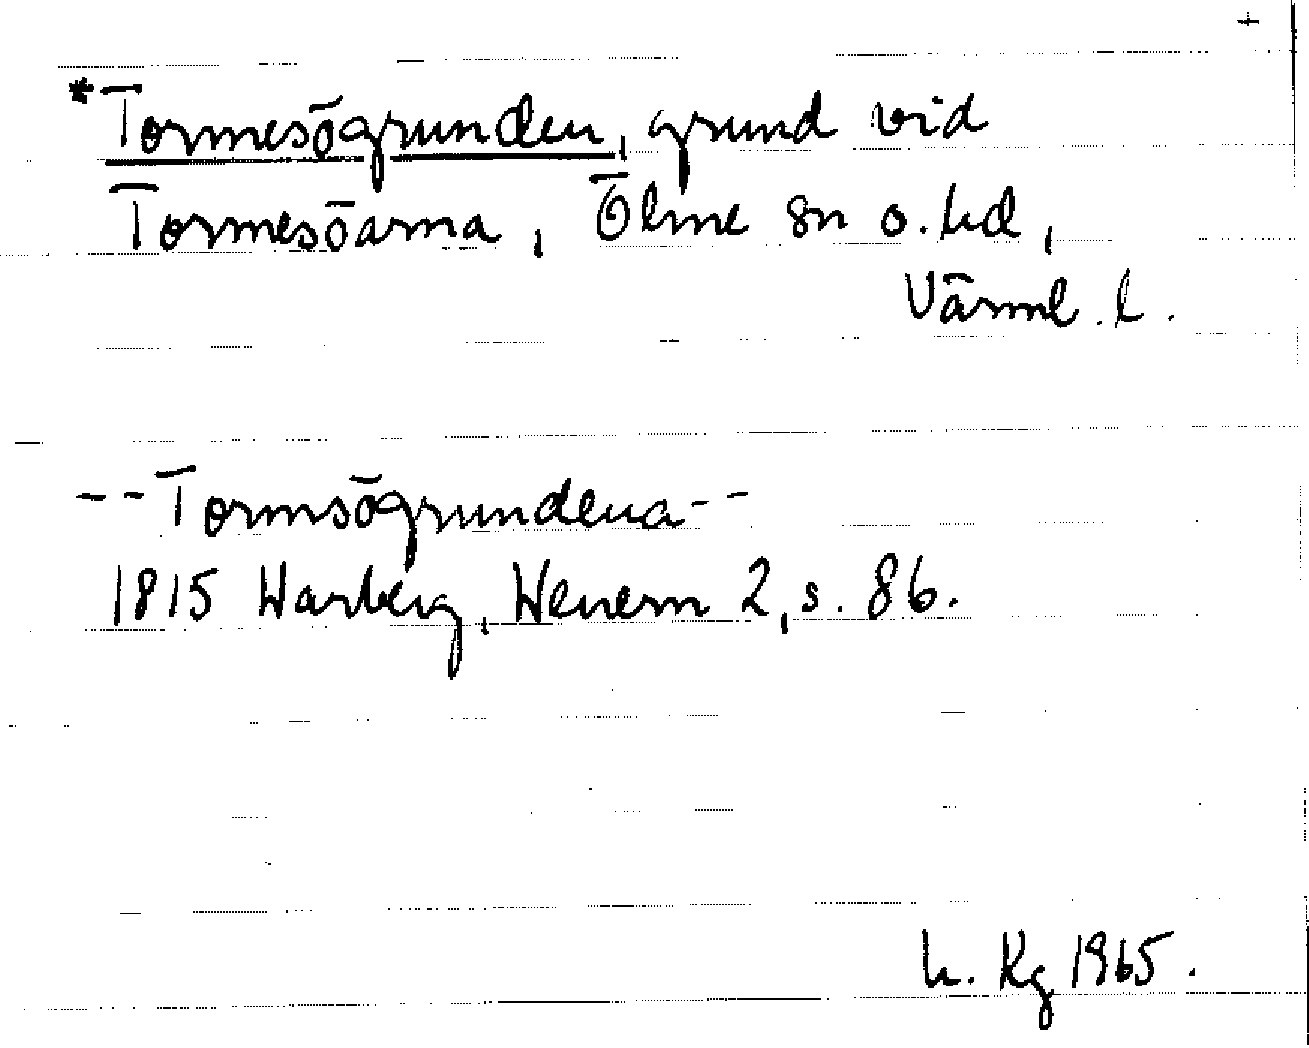 +
*Tormesögrunden, grund vid
Tormesöarna, Ölme sn o. hd,
Värml. l.
--Tormsögrundena--
1815 Warberg, Wenern 2, s. 86.
h. Kg 1965.